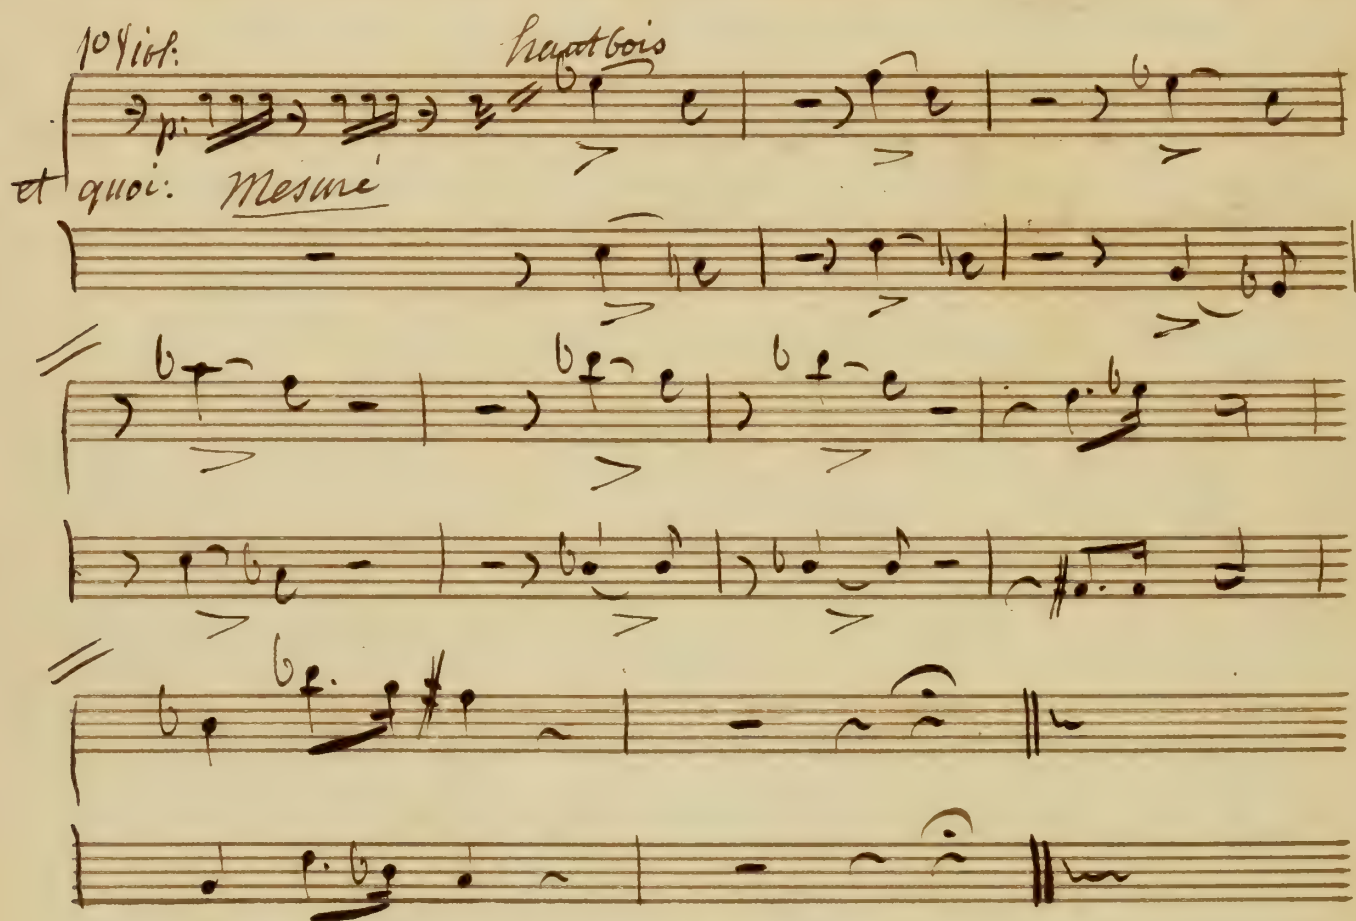 1º Viol: hautbois
p:
et quoi: Mesuré